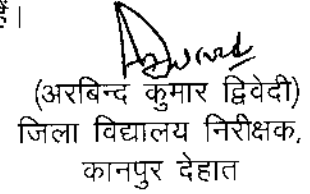 हैं।
(अरबिन्द कुमार द्विवेदी)
जिला विद्यालय निरीक्षक,
कानपुर देहात